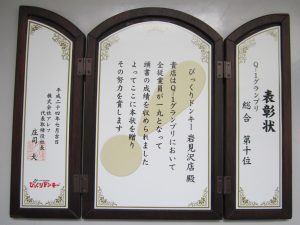 表彰状
Q-1グランプリ
総合 第十位
びっくりドンキー 岩見沢店 殿
貴店はQ-1グランプリにおいて
全従業員が一丸となって
頭書の成績を収められました
よってここに本状を贈り
その努力を賞します
平成二十四年七月吉日
株式会社アレフ
代表取締役社長
庄司 大
びっくりドンキー